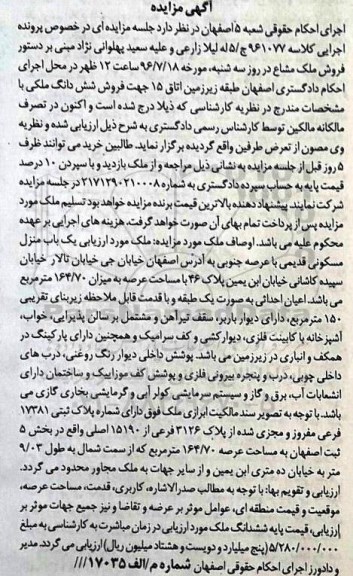 آگهی مزایده
اجرای احکام حقوقی شعبه ۵ اصفهان در نظر دارد جلسه مزایده ای در خصوص پرونده
اجرایی کلاسه ۹۶۱۰۷۷ ج/۵ له لیلا زارعی و علیه سعید پهلوانی نژاد مبنی بر دستور
فروش ملک مشاع در روز سه شنبه، مورخه ۹۶/۷/۱۸ ساعت ۱۲ ظهر در محل اجرای
احکام دادگستری اصفهان طبقه زیرزمین اتاق ۱۵ جهت فروش شش دانگ ملکی با
مشخصات مندرج در نظریه کارشناسی که ذیلا درج شده است و اکنون در تصرف
مالکانه مالکین توسط کارشناس رسمی دادگستری به شرح ذیل ارزیابی شده و نظریه
وی مصون از تعرض طرفین واقع گردیده برگزار نماید. طالبین خرید می توانند ظرف
۵ روز قبل از جلسه مزایده به نشانی ذیل مراجعه و از ملک بازدید و با سپردن ۱۰ درصد
قیمت پایه به حساب سپرده دادگستری به شماره ۲۱۷۱۲۹۰۲۱۰۰۰۸ در جلسه مزایده
شرکت نمایند. پیشنهاد دهنده بالاترین قیمت برنده مزایده خواهد بود تسلیم ملک مورد
مزایده پس از پرداخت تمام بهای آن صورت خواهد گرفت. هزینه های اجرایی بر عهده
محکوم علیه می باشد. اوصاف ملک مورد مزایده: ملک مورد ارزیابی یک باب منزل
مسکونی قدیمی با عرصه جنوبی به آدرس اصفهان خیابان جی خیابان تالار خیابان
سپیده کاشانی خیابان ابن یمین پلاک ۴۶ با مساحت عرصه به میزان ۱۶۴/۷۰ مترمربع
می باشد. اعیان احداثی به صورت یک طبقه و با قدمت قابل ملاحظه زیربنای تقریبی
۱۵۰ مترمربع، دارای دیوار باربر، سقف تیرآهن و مشتمل بر سالن پذیرایی، خواب،
آشپزخانه با کابینت فلزی، دیوار کشی و کف سرامیک و همچنین دارای پارکینگ در
همکف و انباری در زیرزمین می باشد. پوشش داخلی دیوار رنگ روغنی، درب های
داخلی چوبی، درب و پنجره بیرونی فلزی و پوشش کف موزاییک و ساختمان دارای
انشعابات آب، برق و گاز و سیستم سرمایشی کولر آبی و گرمایشی بخاری گازی می
باشد. با توجه به تصویر سند مالکیت ابرازی ملک فوق دارای شماره پلاک ثبتی ۱۷۳۸۱
فرعی مفروز و مجزی شده از پلاک ۳۱۲۶ فرعی از ۱۵۱۹۰ اصلی واقع در بخش ۵
ثبت اصفهان به مساحت عرصه ۱۶۴/۷۰ مترمربع که از سمت شمال به طول ۹/۰۳
متر به خیابان ده متری ابن یمین و از سایر جهات به ملک مجاور محدود می گردد.
ارزیابی و تقویم بها: با توجه به مطالب صدرالاشاره، کاربری، قدمت، مساحت عرصه،
موقعیت و قیمت منطقه ای، عوامل موثر بر عرضه و تقاضا و نیز جمیع جهات موثر بر
ارزیابی، قیمت پایه ششدانگ ملک مورد ارزیابی در زمان مباشرت به کارشناسی به مبلغ
۵/۲۸۰/۰۰۰/۰۰۰ (پنج میلیارد و دویست و هشتاد میلیون ریال) ارزیابی می گردد. مدیر
و دادورز اجرای احکام حقوقی اصفهان شماره م/الف ۱۷۰۳۵///